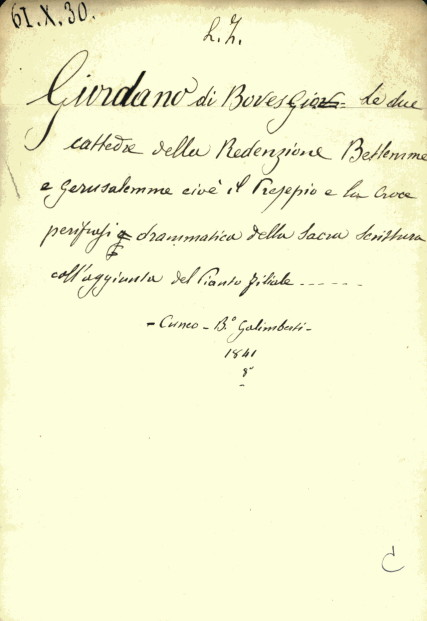 61.X.30.
L.Z.
Giordano di Boves Giov. Le due
cattedre della Redenzione Betlemme
e Gerusalemme cioè il Presepio e la Croce
perifrasi drammatica della Sacra Scrittura
coll'aggiunta del Pianto filiale......
- Cuneo - B.° Galimberti -
1841
8°
C